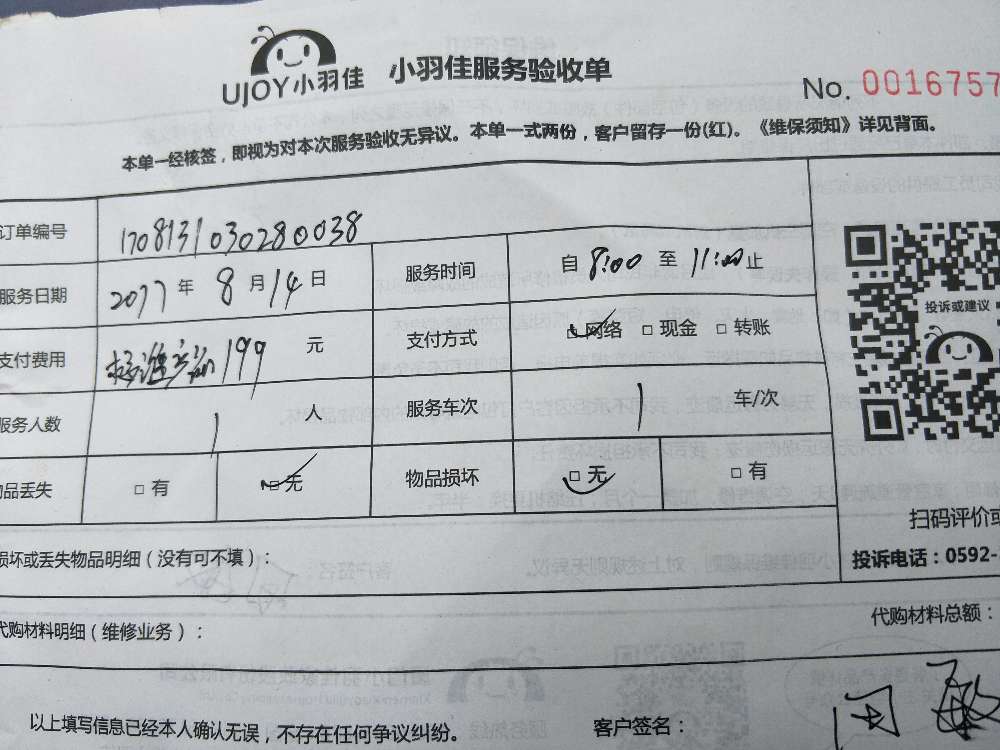 UJOY小羽佳 小羽佳服务验收单
No. 0016757
本单一经核签，即视为对本次服务验收无异议。本单一式两份，客户留存一份(红)。《维保须知》详见背面。
订单编号 170813103028 0038
服务日期 2017 年 8 月 14 日 服务时间 自 8:00 至 11:00 止
支付费用 199 元 支付方式 ☑ 网络 □ 现金 □ 转账
服务人数 1 人 服务车次 1 车/次
品丢失 □ 有 ☑ 无 物品损坏 ☑ 无 □ 有
投诉或建议
扫码评价或
投诉电话：0592-
损坏或丢失物品明细（没有可不填）：
代购材料明细（维修业务）：
代购材料总额：
以上填写信息已经本人确认无误，不存在任何争议纠纷。 客户签名：